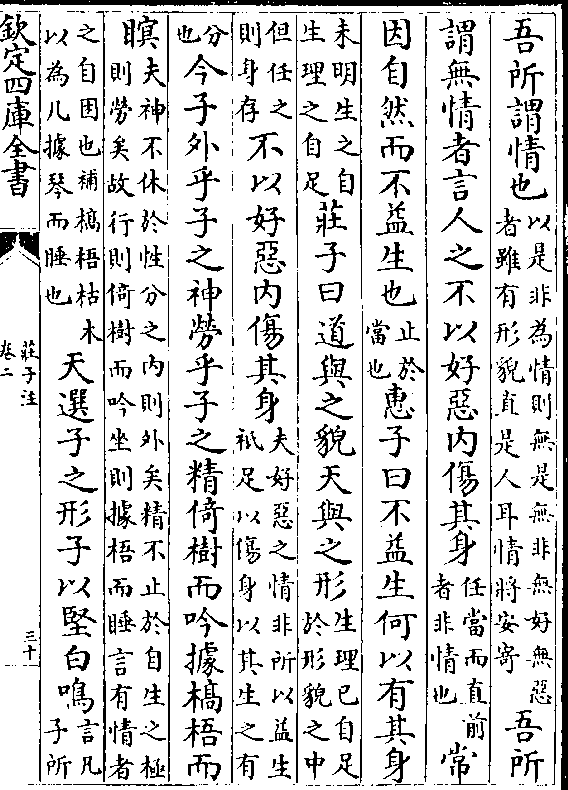 吾所謂情也以是非為情則無是無非無好無惡者雖有形貌直是人耳情將安寄吾所
謂無情者言人之不以好惡内傷其身任當而直前者非情也常
因自然而不益生也止於當也惠子曰不益生何以有其身
未明生之自生理之自足莊子曰道與之貌天與之形生理已自足於形貌之中
但任之則身存不以好惡内傷其身夫好惡之情非所以益生祇足以傷身以其生之有
分也今子外乎子之神勞乎子之精倚樹而吟據槁梧而
瞑夫神不休於性分之内則外矣精不止於自生之極則勞矣故行則倚樹而吟坐則據梧而睡言有情者
之自困也補槁梧枯木以為几據琴而睡也天選子之形子以堅白鳴言凡子所
欽定四庫全書
莊子注
卷二
三十